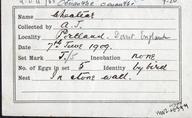 Oenanthe oenanthe
Name Wheatear
Collected by A.J.
Locality Portland. Dorset England
Date 7th June 1909.
Set Mark Incubation none
No. of Eggs in set 5 Identity by bird
Nest in stone wall.